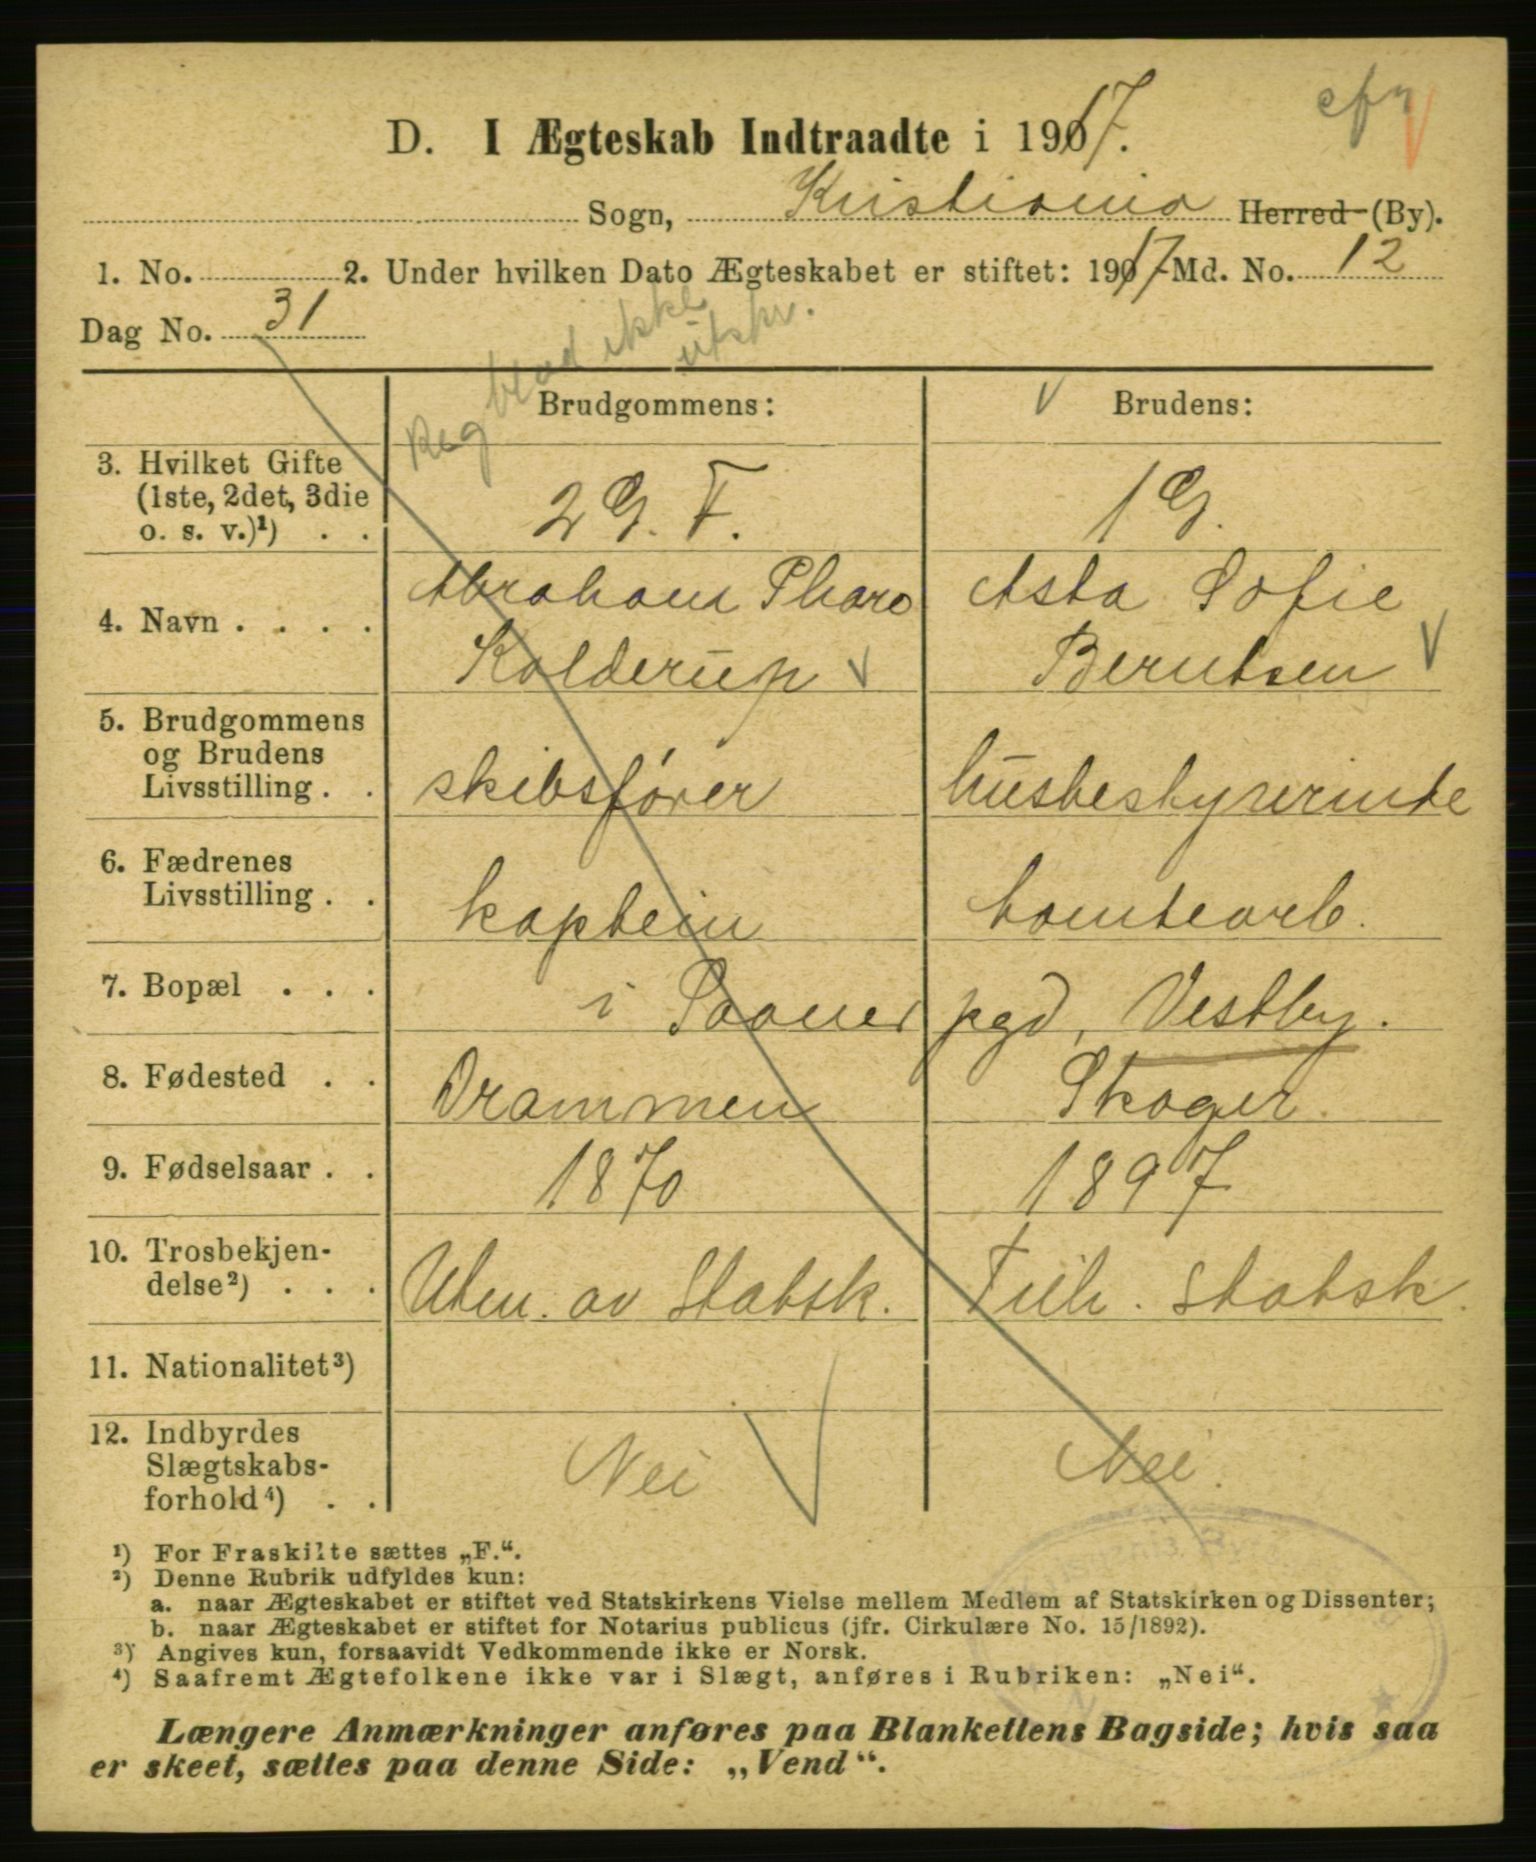 efn
D. I Ægteskab Indtraadte i 1917.
Sogn, Kristiania Herred (By).
1. No. 2. Under hvilken Dato Ægteskabet er stiftet: 1917 Md. No. 12
Dag No. 31
Reg blad ikke
utskr.
Brudgommens: Brudens:
3. Hvilket Gifte
(1ste, 2det, 3die
o. s. v.)¹) . . 2 G. F. 1 G.
4. Navn . . . . Abraham Pharo Asta Sofie
Kolderup Berntsen
5. Brudgommens
og Brudens
Livsstilling . . skibsfører husbestyrerinde
6. Fædrenes
Livsstilling . . kaptein tomtearb.
7. Bopæl . . . i Soner pgd, Vestby.
8. Fødested . . Drammen Skoger.
9. Fødselsaar . . 1870 1897
10. Trosbekjen-
delse²) . . . Uten. av Statsk. Tilh. Statsk.
11. Nationalitet³)
12. Indbyrdes
Slægtskabs-
forhold⁴) . . Nei Nei.
¹) For Fraskilte sættes „F.“.
²) Denne Rubrik udfyldes kun:
a. naar Ægteskabet er stiftet ved Statskirkens Vielse mellem Medlem af Statskirken og Dissenter;
b. naar Ægteskabet er stiftet for Notarius publicus (jfr. Cirkulære No. 15/1892).
³) Angives kun, forsaavidt Vedkommende ikke er Norsk.
⁴) Saafremt Ægtefolkene ikke var i Slægt, anføres i Rubriken: „Nei“.
Længere Anmærkninger anføres paa Blankettens Bagside; hvis saa
er skeet, sættes paa denne Side: „Vend“.